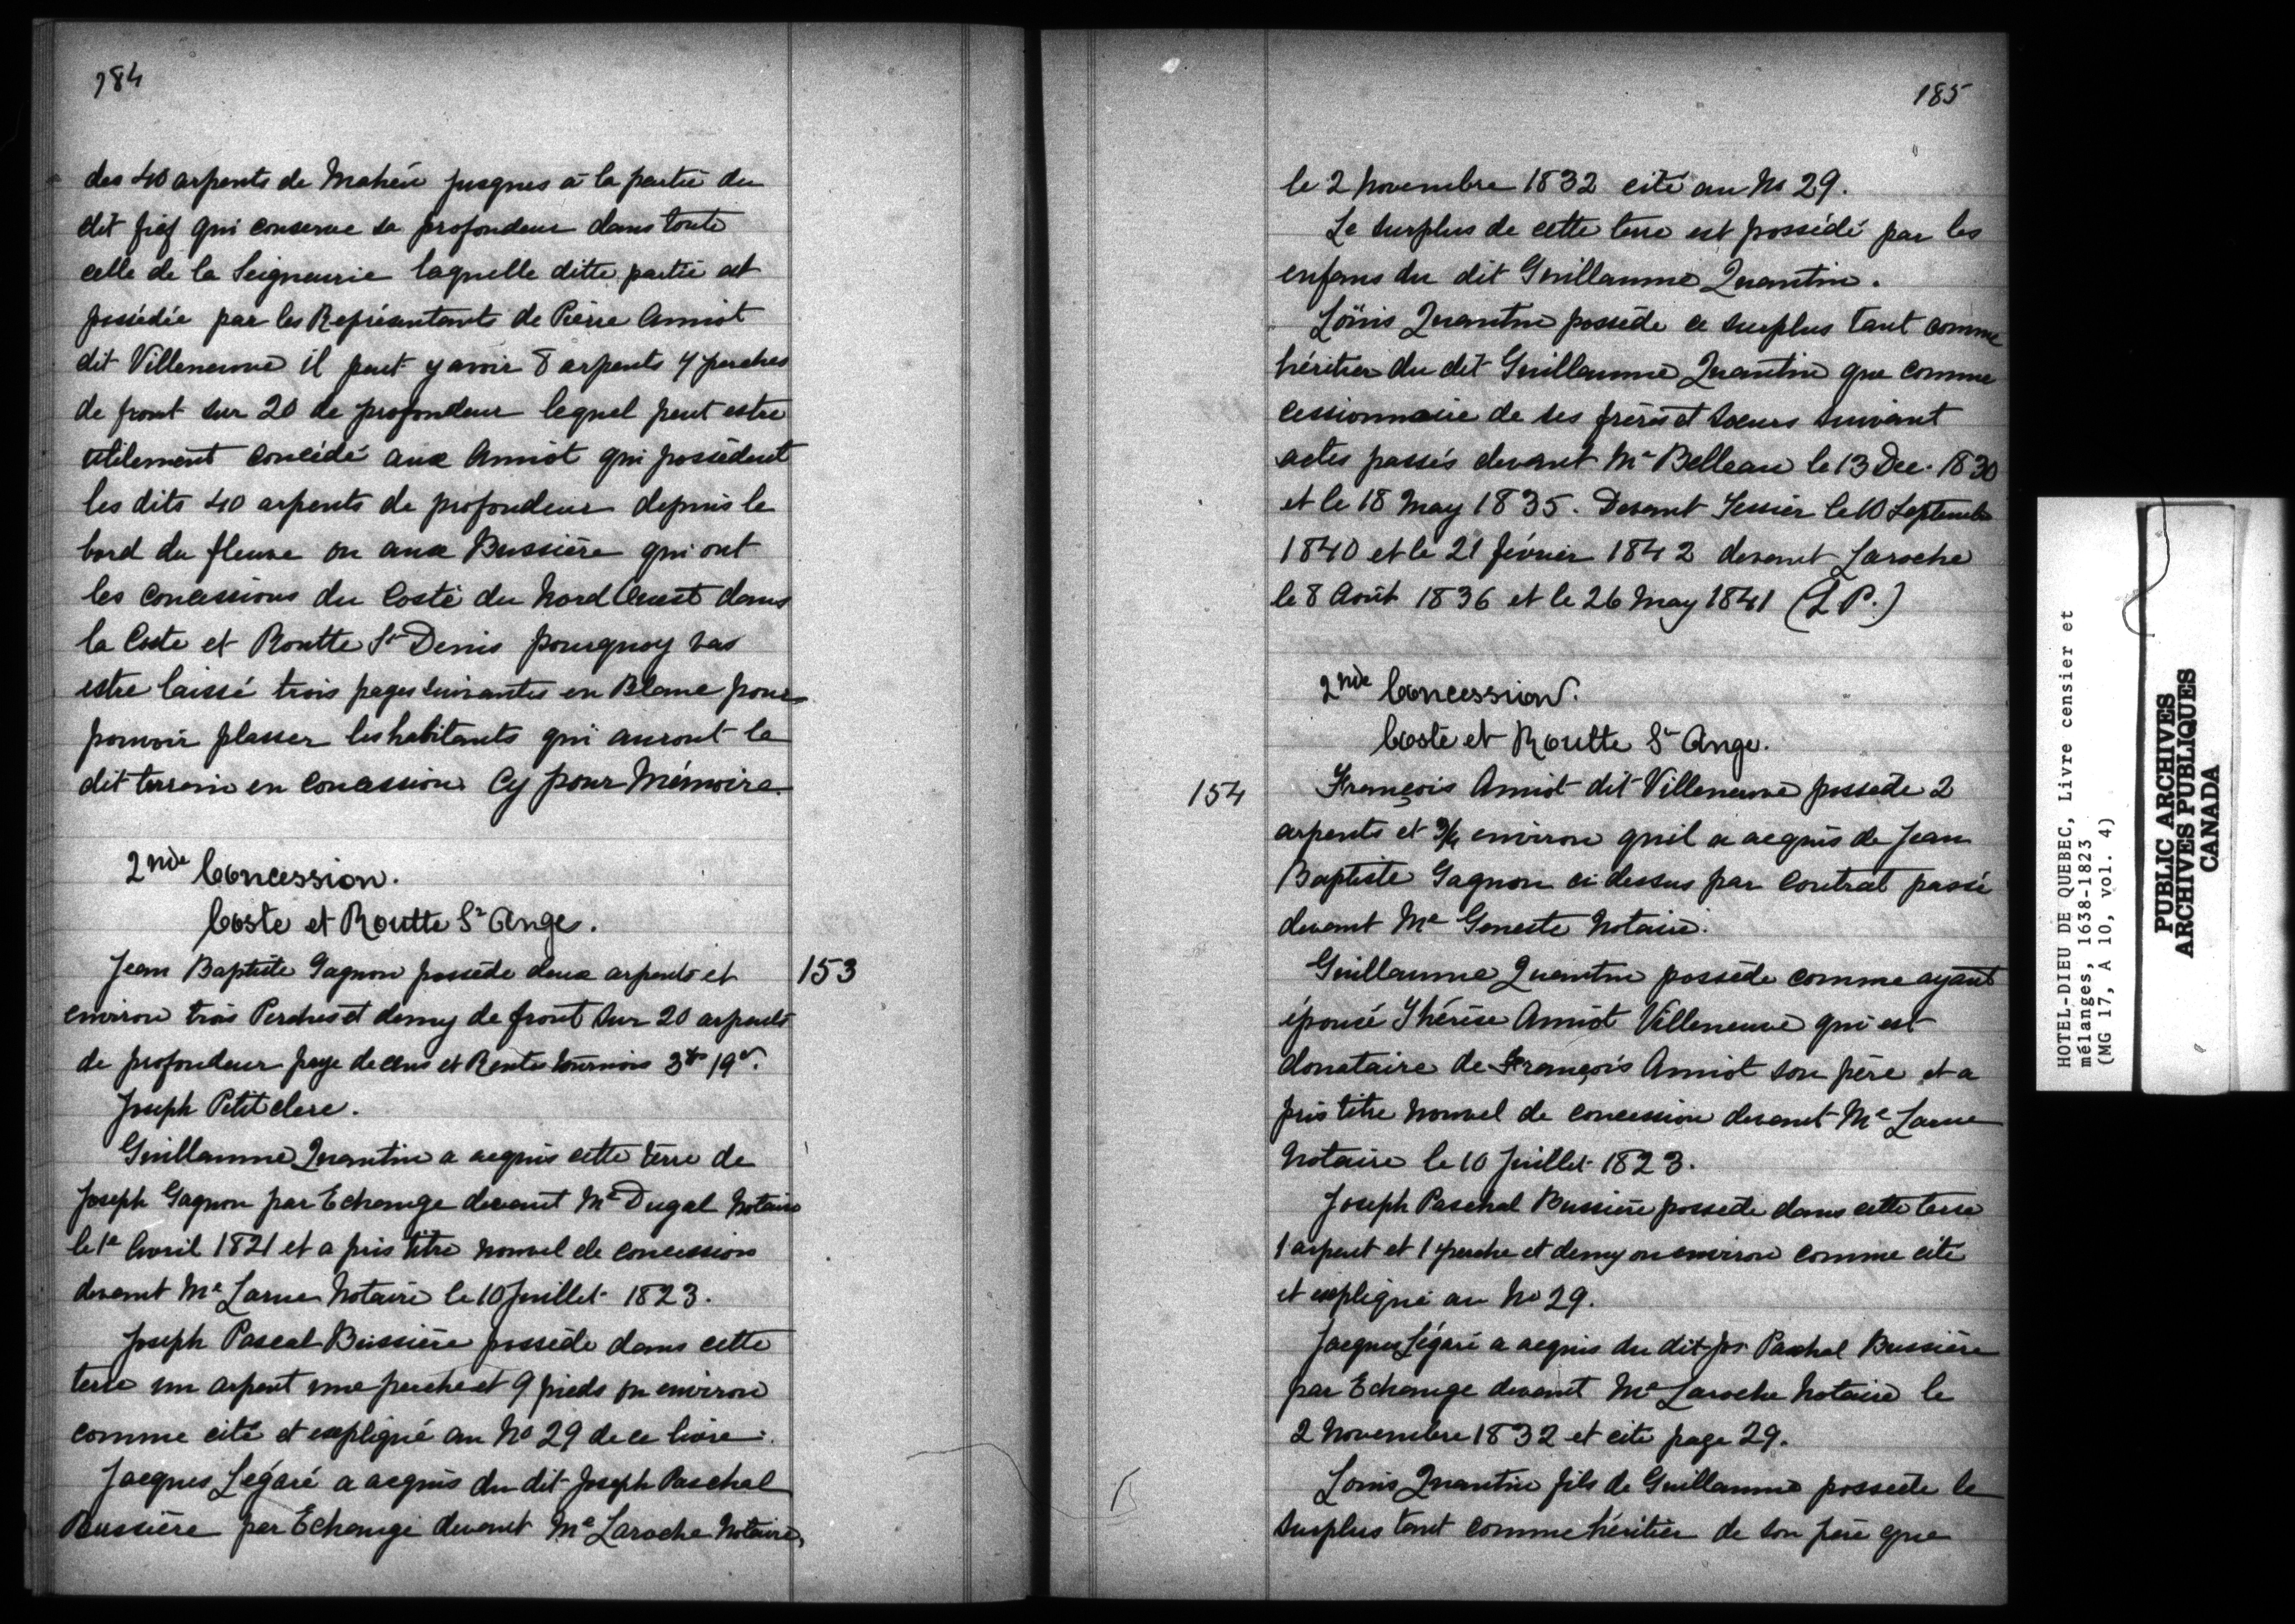 184
des 40 arpents de Mahéu jusques à la partie du
dit fief qui conserve sa profondeur dans toute
celle de la Seigneurie laquelle ditte partie est
possédée par les Représentants de Pierre Amiot
dit Villeneuve il peut y avoir 8 arpents 4 perches
de front sur 20 de profondeur lequel peut estre
utilement concédé aux Amiot qui possèdent
les dits 40 arpents de profondeur depuis le
bord du fleuve ou aux Bussière qui ont
les concessions du Costé du Nord Ouest dans
la Coste et Routte St Denis pourquoy vas
estre laissé trois pages suivantes en Blanc pour
pouvoir plasser les habitants qui auront le
dit terrain en concession Cy pour Mémoire.
2nde Concession.
Coste et Routte St Ange.
Jean Baptiste Gagnon possède deux arpents et
153
environ trois Perches et demy de front sur 20 arpents
de profondeur paye de cens et Rentes tournois 3ts 19s.
Joseph Petitclerc.
Guillaume Quantin a acquis cette terre de
Joseph Gagnon par Echange devant Me Dugal Notaire
le 1e Avril 1821 et a pris titre nouvel de concession
devant Me Larue Notaire le 10 Juillet 1823.
Joseph Pascal Bussière possède dans cette
terre un arpent une perche et 9 pieds ou environ
comme cité et expliqué au No 29 de ce livre.
Jacques Légaré a acquis du dit Joseph Paschal
Bussière par Echange devant Me Laroche Notaire,
185
le 2 Novembre 1832 cité au No 29.
Le surplus de cette terre est possédé par les
enfans du dit Guillaume Quantin.
Loüis Quantin possède ce surplus tant comme
héritier du dit Guillaume Quantin que comme
cessionnaire de ses frères et soeurs suivant
actes passés devant Me Belleau le 13 Dec. 1830
et le 18 May 1835. Devant Tessier le 10 Septembre
1840 et le 21 février 1842 devant Laroche
le 8 Août 1836 et le 26 May 1841 (L P.)
2nde Concession.
Coste et Routte St Ange.
154
François Amiot dit Villeneuve possede 2
arpents et 3/4 environ quil a acquis de Jean
Baptiste Gagnon ci dessus par Contrat passé
devant Me Geneste Notaire.
Guillaume Quantin possède comme ayant
épousé Thérèse Amiot Villeneuve qui est
donataire de François Amiot son père et a
pris titre nouvel de concession devant Me Larue
Notaire le 10 Juillet 1823.
Joseph Paschal Bussière possede dans cette terre
1 arpent et 1 perche et demy ou environ comme cité
et expliqué au No 29.
Jacques Légaré a acquis du dit Jos. Paschal Bussière
par Echange devant Me Laroche Notaire le
2 Novembre 1832 et cité page 29.
Louis Quantin fils de Guillaume possede le
surplus tant comme héritier de son père que
HOTEL-DIEU DE QUEBEC, Livre censier et
mélanges, 1638-1823
(MG 17, A 10, vol. 4)
PUBLIC ARCHIVES
ARCHIVES PUBLIQUES
CANADA